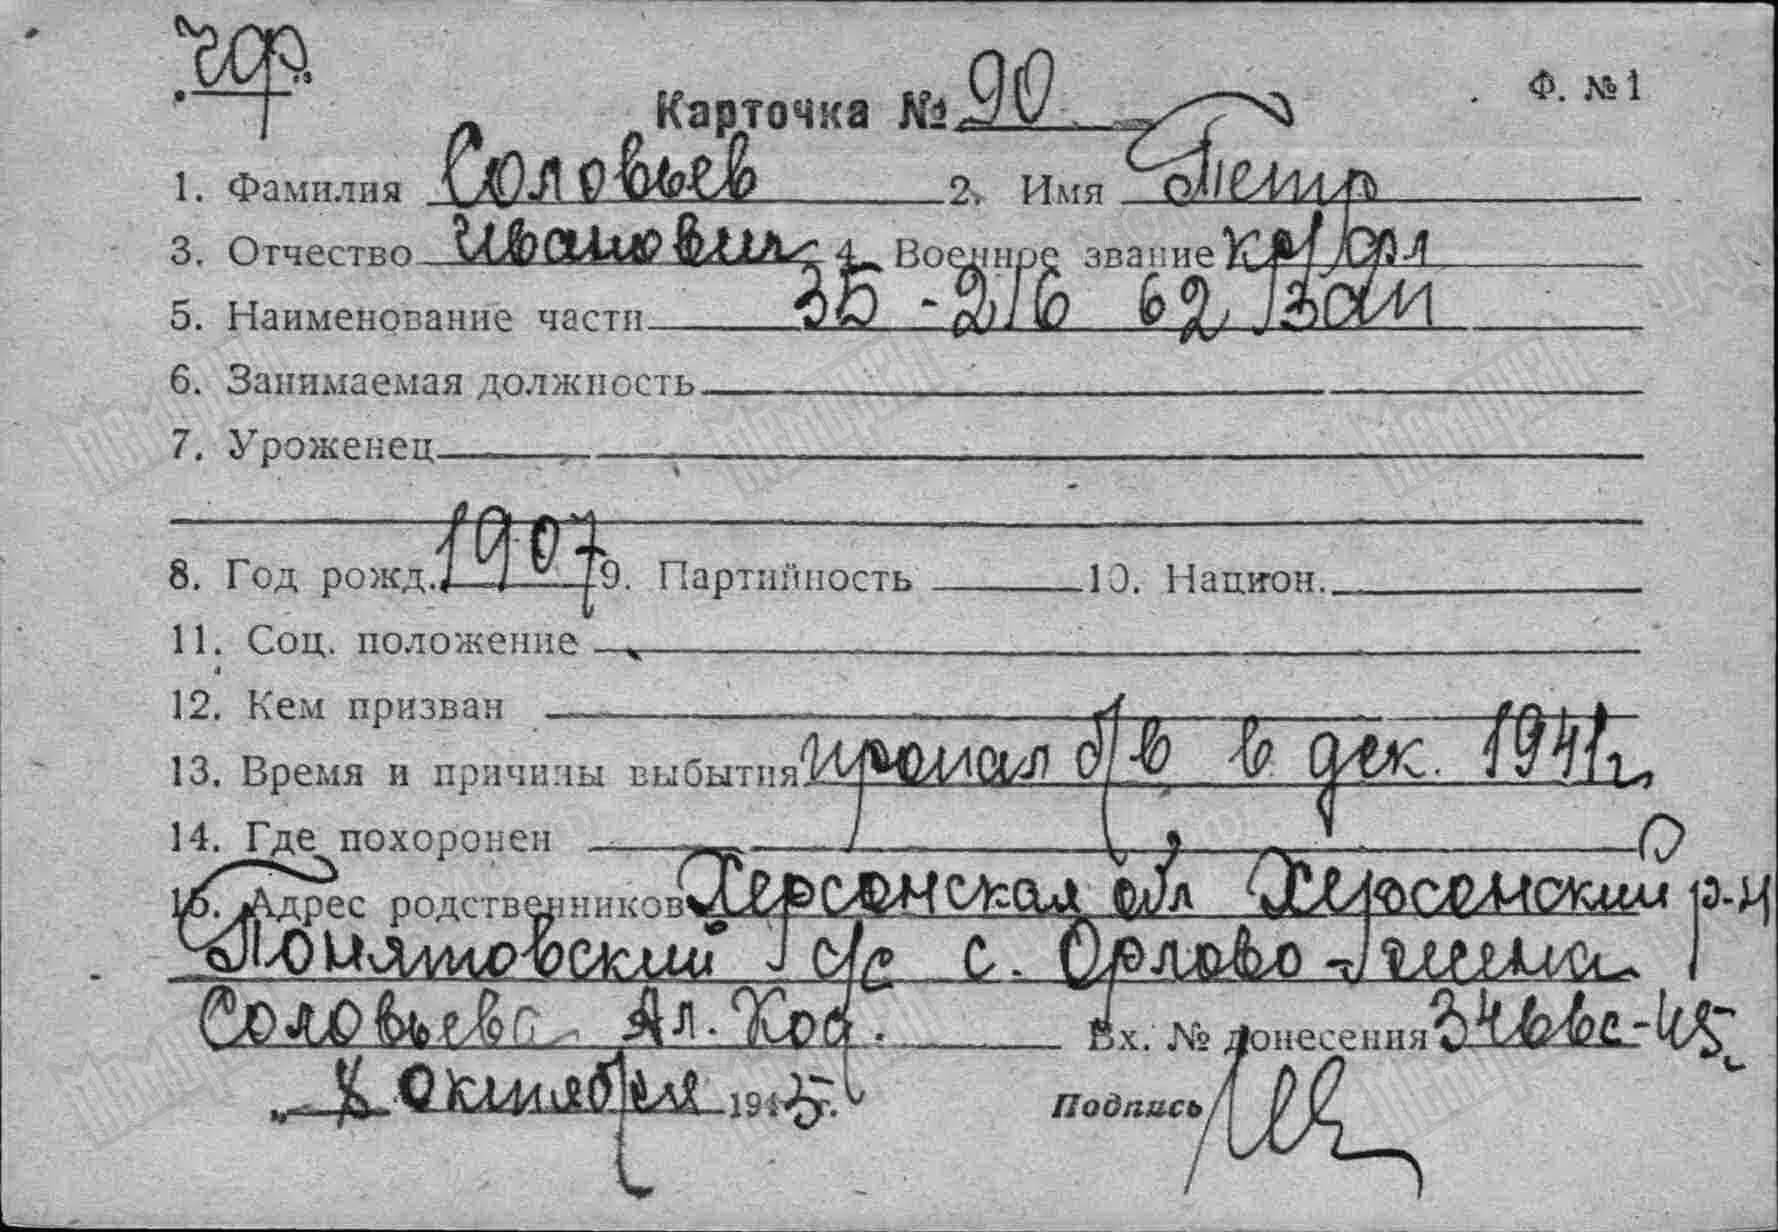 чф.
Карточка № 90
Ф. № 1
1. Фамилия Соловьев 2. Имя Петр
3. Отчество Иванович 4. Военное звание кр/фл
5. Наименование части 35-216 62 зап
6. Занимаемая должность
7. Уроженец
8. Год рожд. 1907 9. Партийность 10. Национ.
11. Соц. положение
12. Кем призван
13. Время и причины выбытия пропал б/в в дек. 1941г.
14. Где похоронен
15. Адрес родственников Херсонская обл Херсонский р-н
Понятовский с/с с. Орлово - жена
Соловьева Ал. Вх. № донесения 3466с-45
8 октября 1945г. Подпись